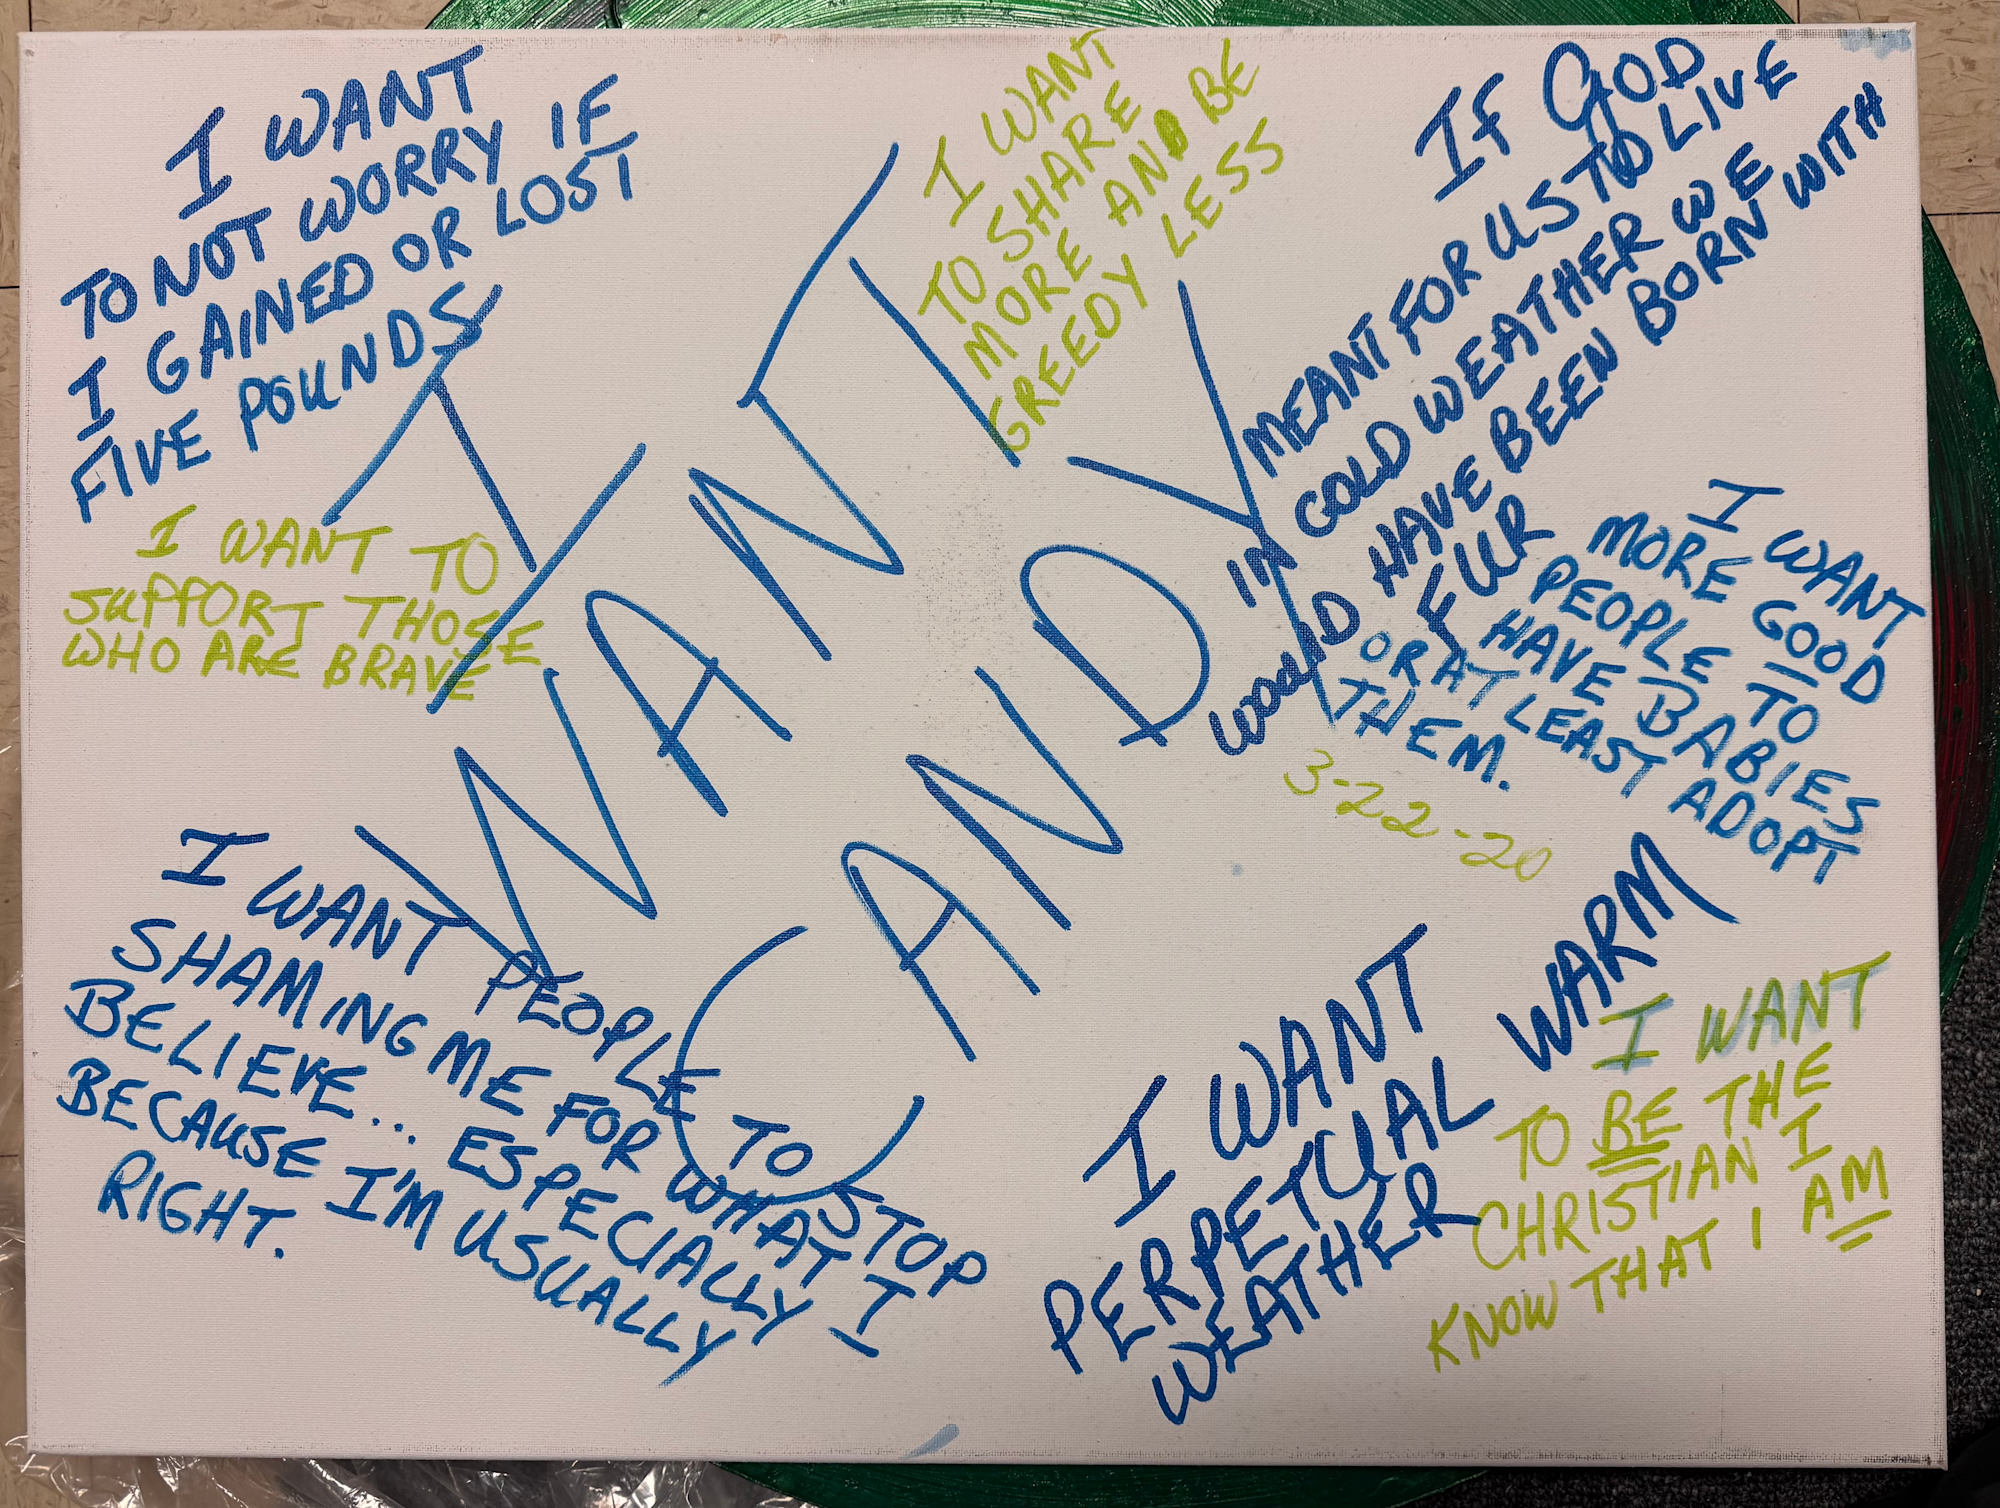 I WANT
TO NOT WORRY IF
I GAINED OR LOST
FIVE POUNDS
I WANT
TO SHARE
MORE AND BE
GREEDY LESS
IF GOD
MEANT FOR US TO LIVE
IN COLD WEATHER WE
WOULD HAVE BEEN BORN WITH
FUR
I WANT TO
SUPPORT THOSE
WHO ARE BRAVE
I
WANT
CANDY
I WANT
MORE GOOD
PEOPLE TO
HAVE BABIES
OR AT LEAST ADOPT
THEM.
3-22-20
I WANT PEOPLE TO STOP
SHAMING ME FOR WHAT I
BELIEVE... ESPECIALLY
BECAUSE I'M USUALLY
RIGHT.
I WANT
PERPETUAL WARM
WEATHER
I WANT
TO BE THE
CHRISTIAN I
KNOW THAT I AM